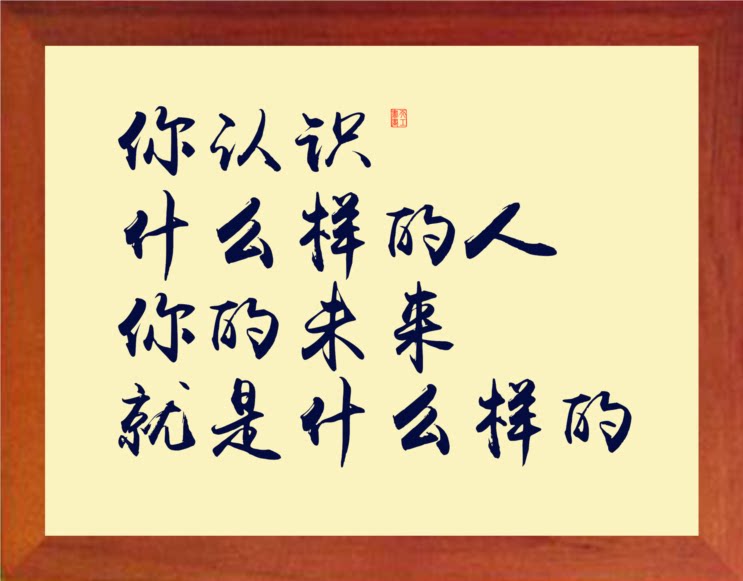 你认识
什么样的人
你的未来
就是什么样的